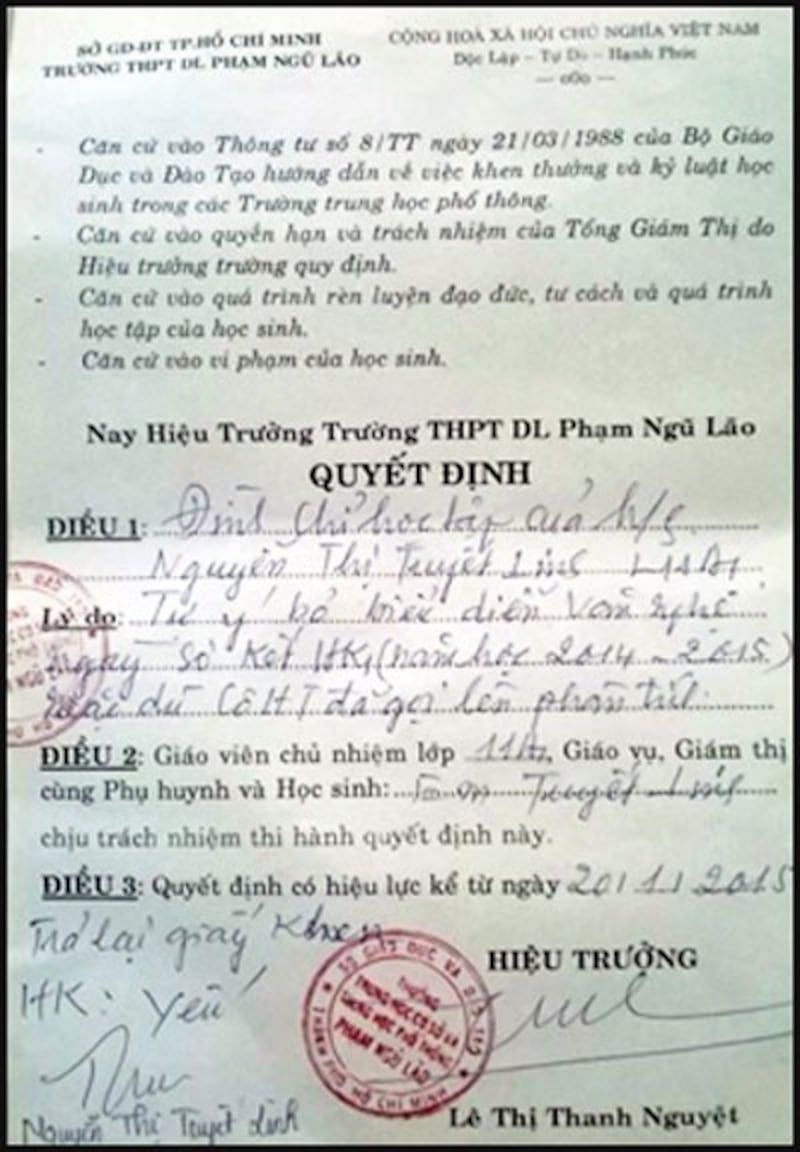 SỞ GD-ĐT TP.HỒ CHÍ MINH
TRƯỜNG THPT DL PHẠM NGŨ LÃO
CỘNG HOÀ XÃ HỘI CHỦ NGHĨA VIỆT NAM
Độc Lập – Tự Do – Hạnh Phúc
— o0o —
- Căn cứ vào Thông tư số 8/TT ngày 21/03/1988 của Bộ Giáo
Dục và Đào Tạo hướng dẫn về việc khen thưởng và kỷ luật học
sinh trong các Trường trung học phổ thông.
- Căn cứ vào quyền hạn và trách nhiệm của Tổng Giám Thị do
Hiệu trưởng trường quy định.
- Căn cứ vào quá trình rèn luyện đạo đức, tư cách và quá trình
học tập của học sinh.
- Căn cứ vào vi phạm của học sinh.
Nay Hiệu Trưởng Trường THPT DL Phạm Ngũ Lão
QUYẾT ĐỊNH
ĐIỀU 1: Đình chỉ học tập của h/s
Nguyễn Thị Tuyết Linh
Lý do: Tự ý bỏ biểu diễn Văn nghệ
ngày sơ kết HK1 (năm học 2014 - 2015)
mặc dù Cô HT đã gọi lên phân tích.
ĐIỀU 2: Giáo viên chủ nhiệm lớp, Giáo vụ, Giám thị
cùng Phụ huynh và Học sinh: Tuyết Linh
chịu trách nhiệm thi hành quyết định này.
ĐIỀU 3: Quyết định có hiệu lực kể từ ngày 20/1/2015
Trả lại giấy khen
HK: Yếu
HIỆU TRƯỞNG
SỞ GIÁO DỤC VÀ ĐÀO TẠO
TRƯỜNG
TRUNG HỌC CƠ SỞ VÀ
TRUNG HỌC PHỔ THÔNG
PHẠM NGŨ LÃO
THÀNH PHỐ HỒ CHÍ MINH
Nguyễn Thị Tuyết Linh
Lê Thị Thanh Nguyệt